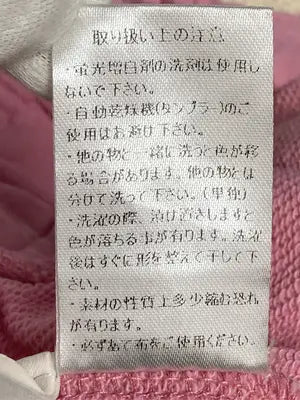 取り扱い上の注意
・蛍光増白剤の洗剤は使用し
ないで下さい。
・自動乾燥機(タンブラー)のご
使用はお避け下さい。
・他の物と一緒に洗うと色が移
る場合があります。他の物とは
分けて洗って下さい。(単独)
・洗濯の際、漬け置きしますと
色が落ちる事が有ります。洗濯
後はすぐに形を整えて干して下
さい。
・素材の性質上多少縮む恐れ
が有ります。
・必ずあて布をご使用ください。